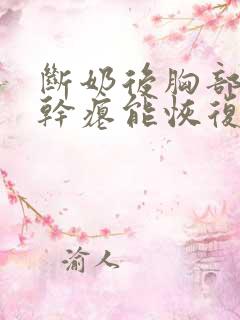 斷奶後胸部
幹癟能恢復
渝人